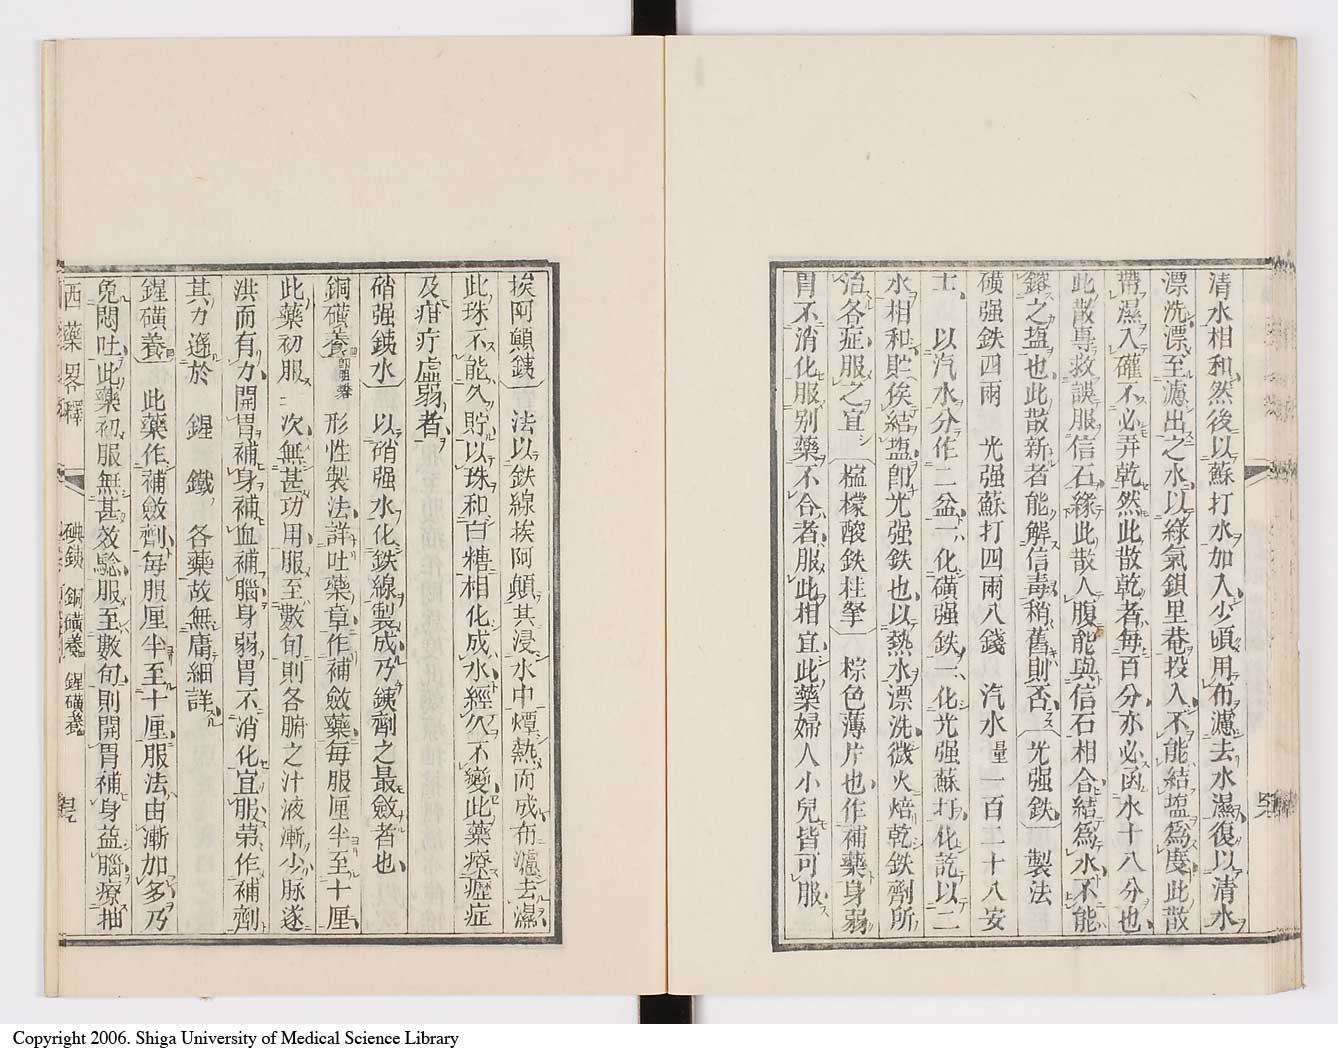 清水相和然後以蘇打水加入少頃用布濾去水濕復以清水
漂洗漂至濾出之水以綠氣鋇里菴投入不能結塩為度此散
帶濕入礶不必弄乾然此散乾者每百分亦必函水十八分也
此散專救誤服信石緣此散人腹能與信石相合結為水不能
鎔之塩也此散新者能解信毒稍舊則否 光强鉄 製法
磺强鉄四兩 光强蘇打四兩八錢 汽水量一百二十八安
士 以汽水分作二盆一化磺强鉄一化光强蘇打化訖以二
水相和貯俟結塩卽光强鉄也以熱水漂洗微火焙乾鉄劑所
治各症服之宜 檸檬酸鉄桂拏 棕色薄片也作補藥身弱
胃不消化服别藥不合者服此相宜此藥婦人小兒皆可服
挨阿顚銕 法以鉄線挨阿顚其浸水中燂熱而成布濾去濕
此珠不能久貯以珠和白糖相化成水經久不變此藥療癧症
及疳疔虛弱者
硝强銕水 以硝强水化鉄線製成乃銕劑之最斂者也
銅磺養 形性製法詳吐藥章作補斂藥每服厘半至十厘
此藥初服一二次無甚功用服至數旬則各腑之汁液漸少脉遂
洪而有力開胃補身補血補腦身弱胃不消化宜服第作補劑
其力遜於 鍟 鐵 各藥故無庸細詳
鍟磺養 此藥作補斂劑每服厘半至十厘服法由漸加多乃
免悶吐此藥初服無甚效騐服至數旬則開胃補身益腦療抽
西藥畧釋 碘銕 銅磺養 鍟磺養
Copyright 2006. Shiga University of Medical Science Library